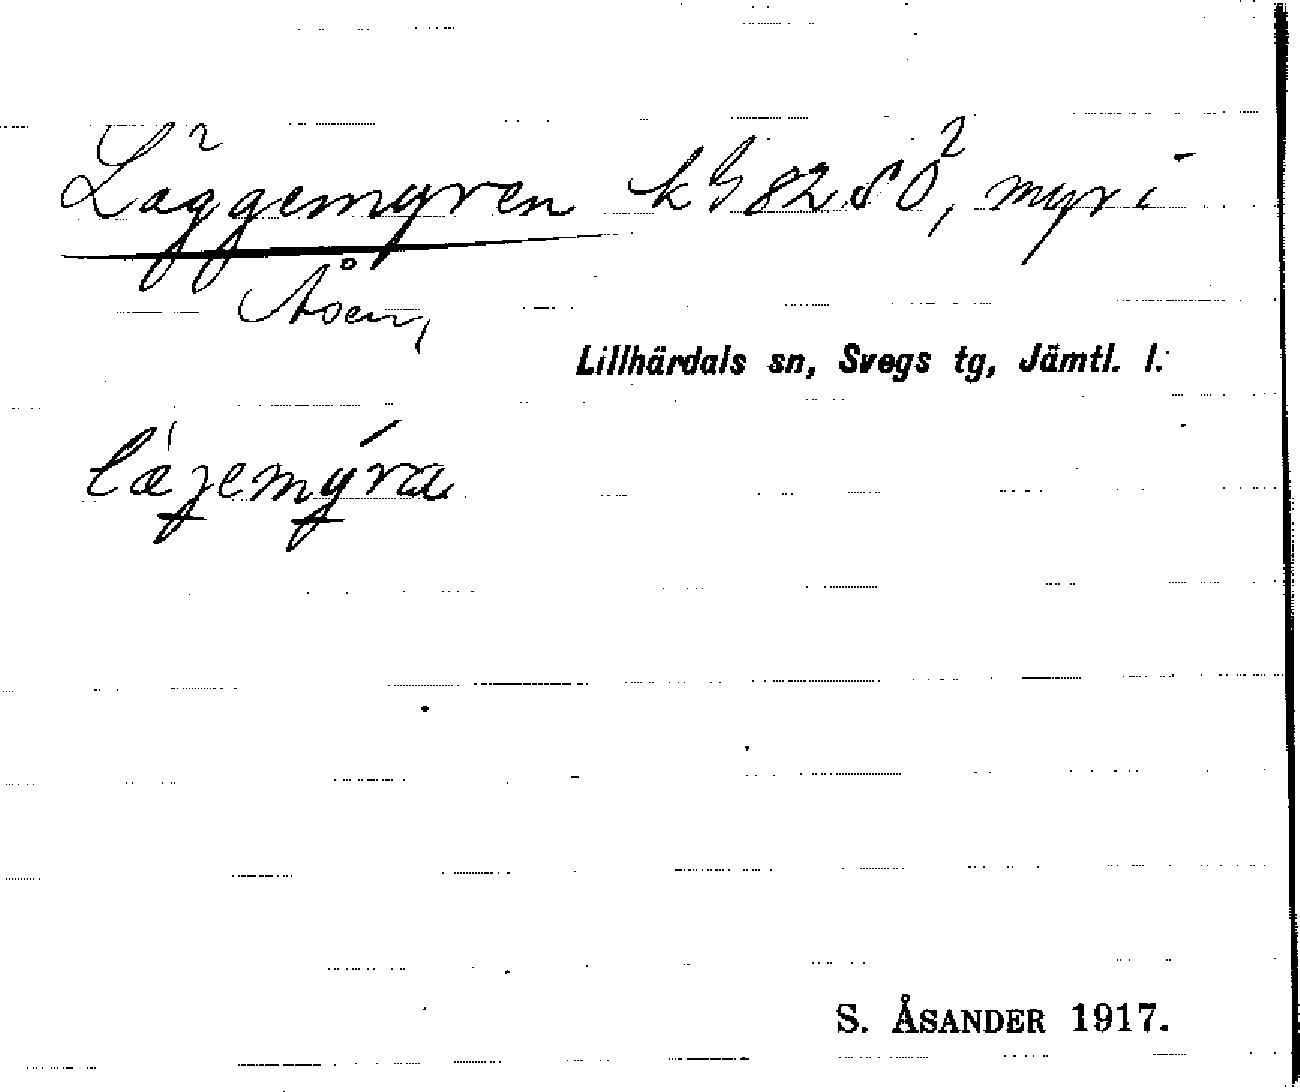 Läggemyren kG 82 SO², myr i
Åsen,
Lillhärdals sn, Svegs tg, Jämtl. l.
lǽgemýra
S. ÅSANDER 1917.